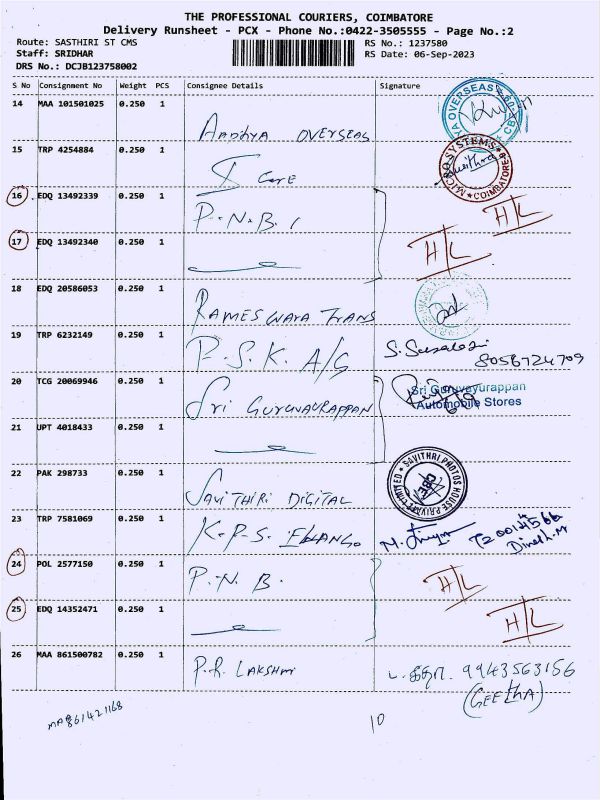 THE PROFESSIONAL COURIERS, COIMBATORE
Delivery Runsheet - PCX - Phone No.:0422-3505555 - Page No.:2
Route: SASTHIRI ST CMS
RS No.: 1237580
Staff: SRIDHAR
RS Date: 06-Sep-2023
DRS No.: DCJB123758002
S No Consignment No Weight PCS Consignee Details Signature
14 MAA 101501025 0.250 1 AADHYA OVERSEAS
15 TRP 4254884 0.250 1 I CARE MICRO SYSTEMS COIMBATORE
16 EDQ 13492339 0.250 1 P.N.B. 1 H/L
17 EDQ 13492340 0.250 1 H/L
18 EDQ 20586053 0.250 1 RAMESWARA TRANS
19 TRP 6232149 0.250 1 P.S.K. A/G 8056724709
20 TCG 20069946 0.250 1 Sri GURUVAURAPPAN Sri Guruvayurappan
Automobile Stores
21 UPT 4018433 0.250 1
22 PAK 298733 0.250 1 SAVITHIRI DIGITAL SAVITHRI PHOTOS HOUSE PRIVATE LIMITED
23 TRP 7581069 0.250 1 K.P.S. ELANGO
Dinesh.M
24 POL 2577150 0.250 1 P.N.B. H/L
25 EDQ 14352471 0.250 1 H/L
26 MAA 861500782 0.250 1 P.R. LAKSHMI 9943563156
(GEETHA)
MAA861421168
10